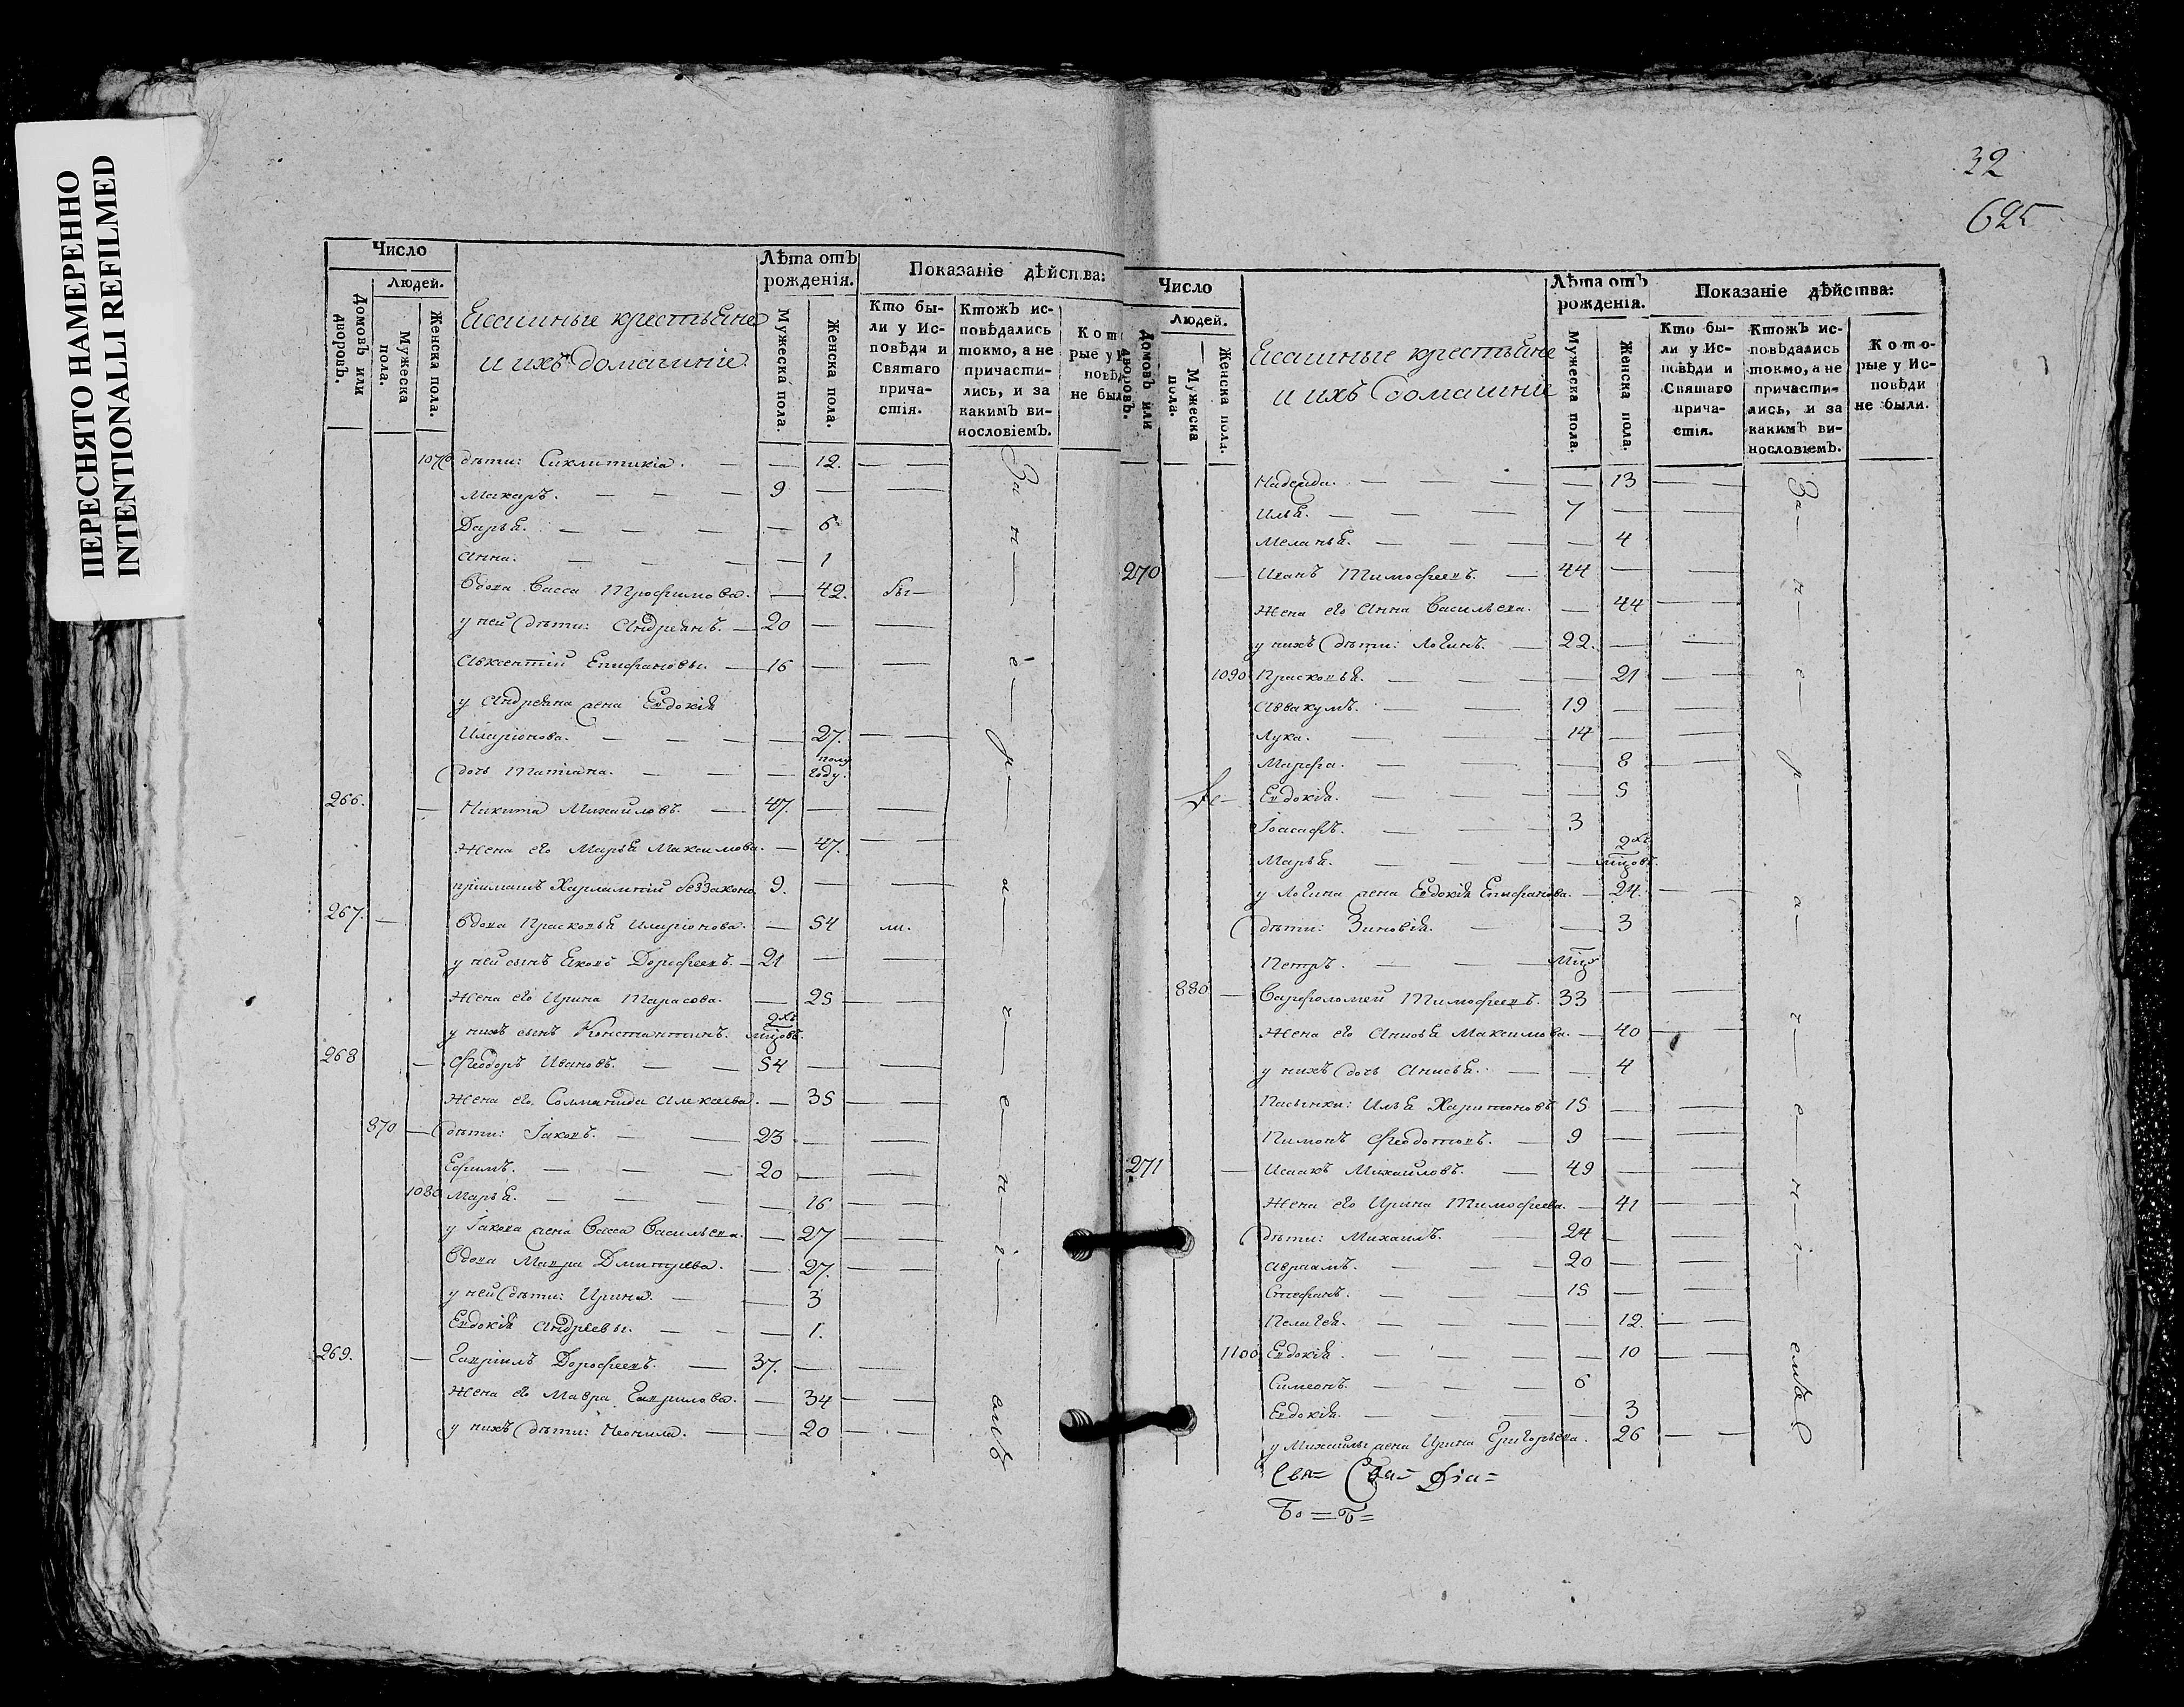 ПЕРЕСНЯТО НАМЕРЕННО
INTENTIONALLI REFILMED
Число
Людей.
Домовъ или дворовъ.
Мужеска пола.
Женска пола.
крестьяне
и ихъ домашніе
Лѣта отъ рожденія.
Мужеска пола.
Женска пола.
Показаніе дѣйства:
Кто были у Исповѣди и Святаго причастія.
Ктожъ исповѣдались токмо, а не причастились, и за какимъ винословіемъ.
дѣти: Сиклитикіа. 12.
Макаръ. 9
Дарья. 6
Анна. 1
вдова Васса Трофимова. 42. бы
у ней дѣти: Андреянъ. 20
Авксентій Епифановы. 16
у Андреяна жена Евдокія
Иларіонова. 27.
дочь Татіана. полу году.
266. Никита Михайловъ. 47.
Жена его Марья Максимова. 47.
пріимашъ Харлампій беззаконо 9.
267. вдова Прасковья Иларіонова. 54 ли.
у ней сынъ Яковъ Дорофеевъ. 21
Жена его Ирина Тарасова. 25
у нихъ сынъ Константинъ. 2хъ мцовъ.
268 Феодоръ Ивановъ. 54
Жена его Соломанида Алексеева. 35
870 дѣти: Іаковъ. 23
Ефимъ. 20
1080 Марья. 16
у Іакова жена Васса Васильева. 27
вдова Мавра Дмитріева. 27.
у ней дѣти: Ирина. 3
Евдокія Андреевы. 1.
269. Гавріилъ Дорофеевъ. 37.
Жена его Мавра Гаврилова. 34
у нихъ дѣти: Неонила. 20
За н е р а ч е н і емъ
32
625
Число
Людей.
Домовъ или дворовъ.
Мужеска пола.
Женска пола.
крестьяне
и ихъ домашніе
Лѣта отъ рожденія.
Мужеска пола.
Женска пола.
Показаніе дѣйства:
Кто были у Исповѣди и Святаго причастія.
Ктожъ исповѣдались токмо, а не причастились, и за какимъ винословіемъ.
Которые у Исповѣди не были.
Надежда. 13
Илья. 7
Меланья. 4
270 Иванъ Тимофеевъ. 44
Жена его Анна Васильева. 44
у нихъ дѣти: Логинъ. 22.
1090 Прасковья. 21
Аввакумъ. 19
Лука. 14
Марфа. 8
Евдокія. 5
Іоасафъ. 3
Марья. 2хъ мцовъ.
у Логина жена Евдокія Епифанова. 24.
дѣти: Зиновія. 3
Петръ. мцъ
880 Варфоломей Тимофеевъ. 33
Жена его Анисья Максимова. 40
у нихъ дочь Анисья. 4
Пасынки: Илья Харитоновъ 15
Пимонъ Феодотовъ. 9
271 Исаакъ Михайловъ. 49
Жена его Ирина Тимофеева. 41
дѣти: Михаилъ. 24
Авраамъ. 20
Стефанъ. 15
Пелагея. 12.
1100 Евдокія. 10
Симеонъ. 6
Евдокія. 3
у Михаилы жена Ирина Григорьева. 26
За н е р а ч е н і емъ